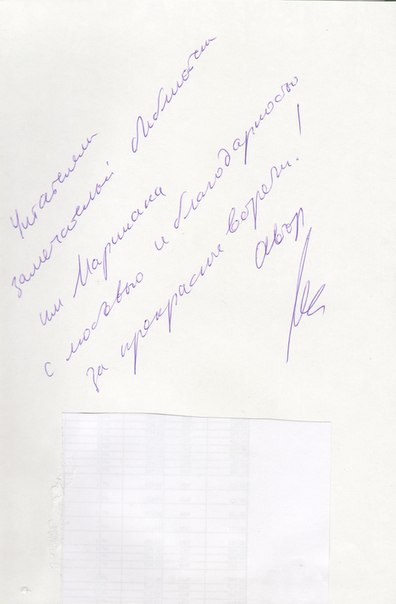 Читателям
замечательной библиотеки
им Маршака
с любовью и благодарностью
за прекрасные встречи!
Автор